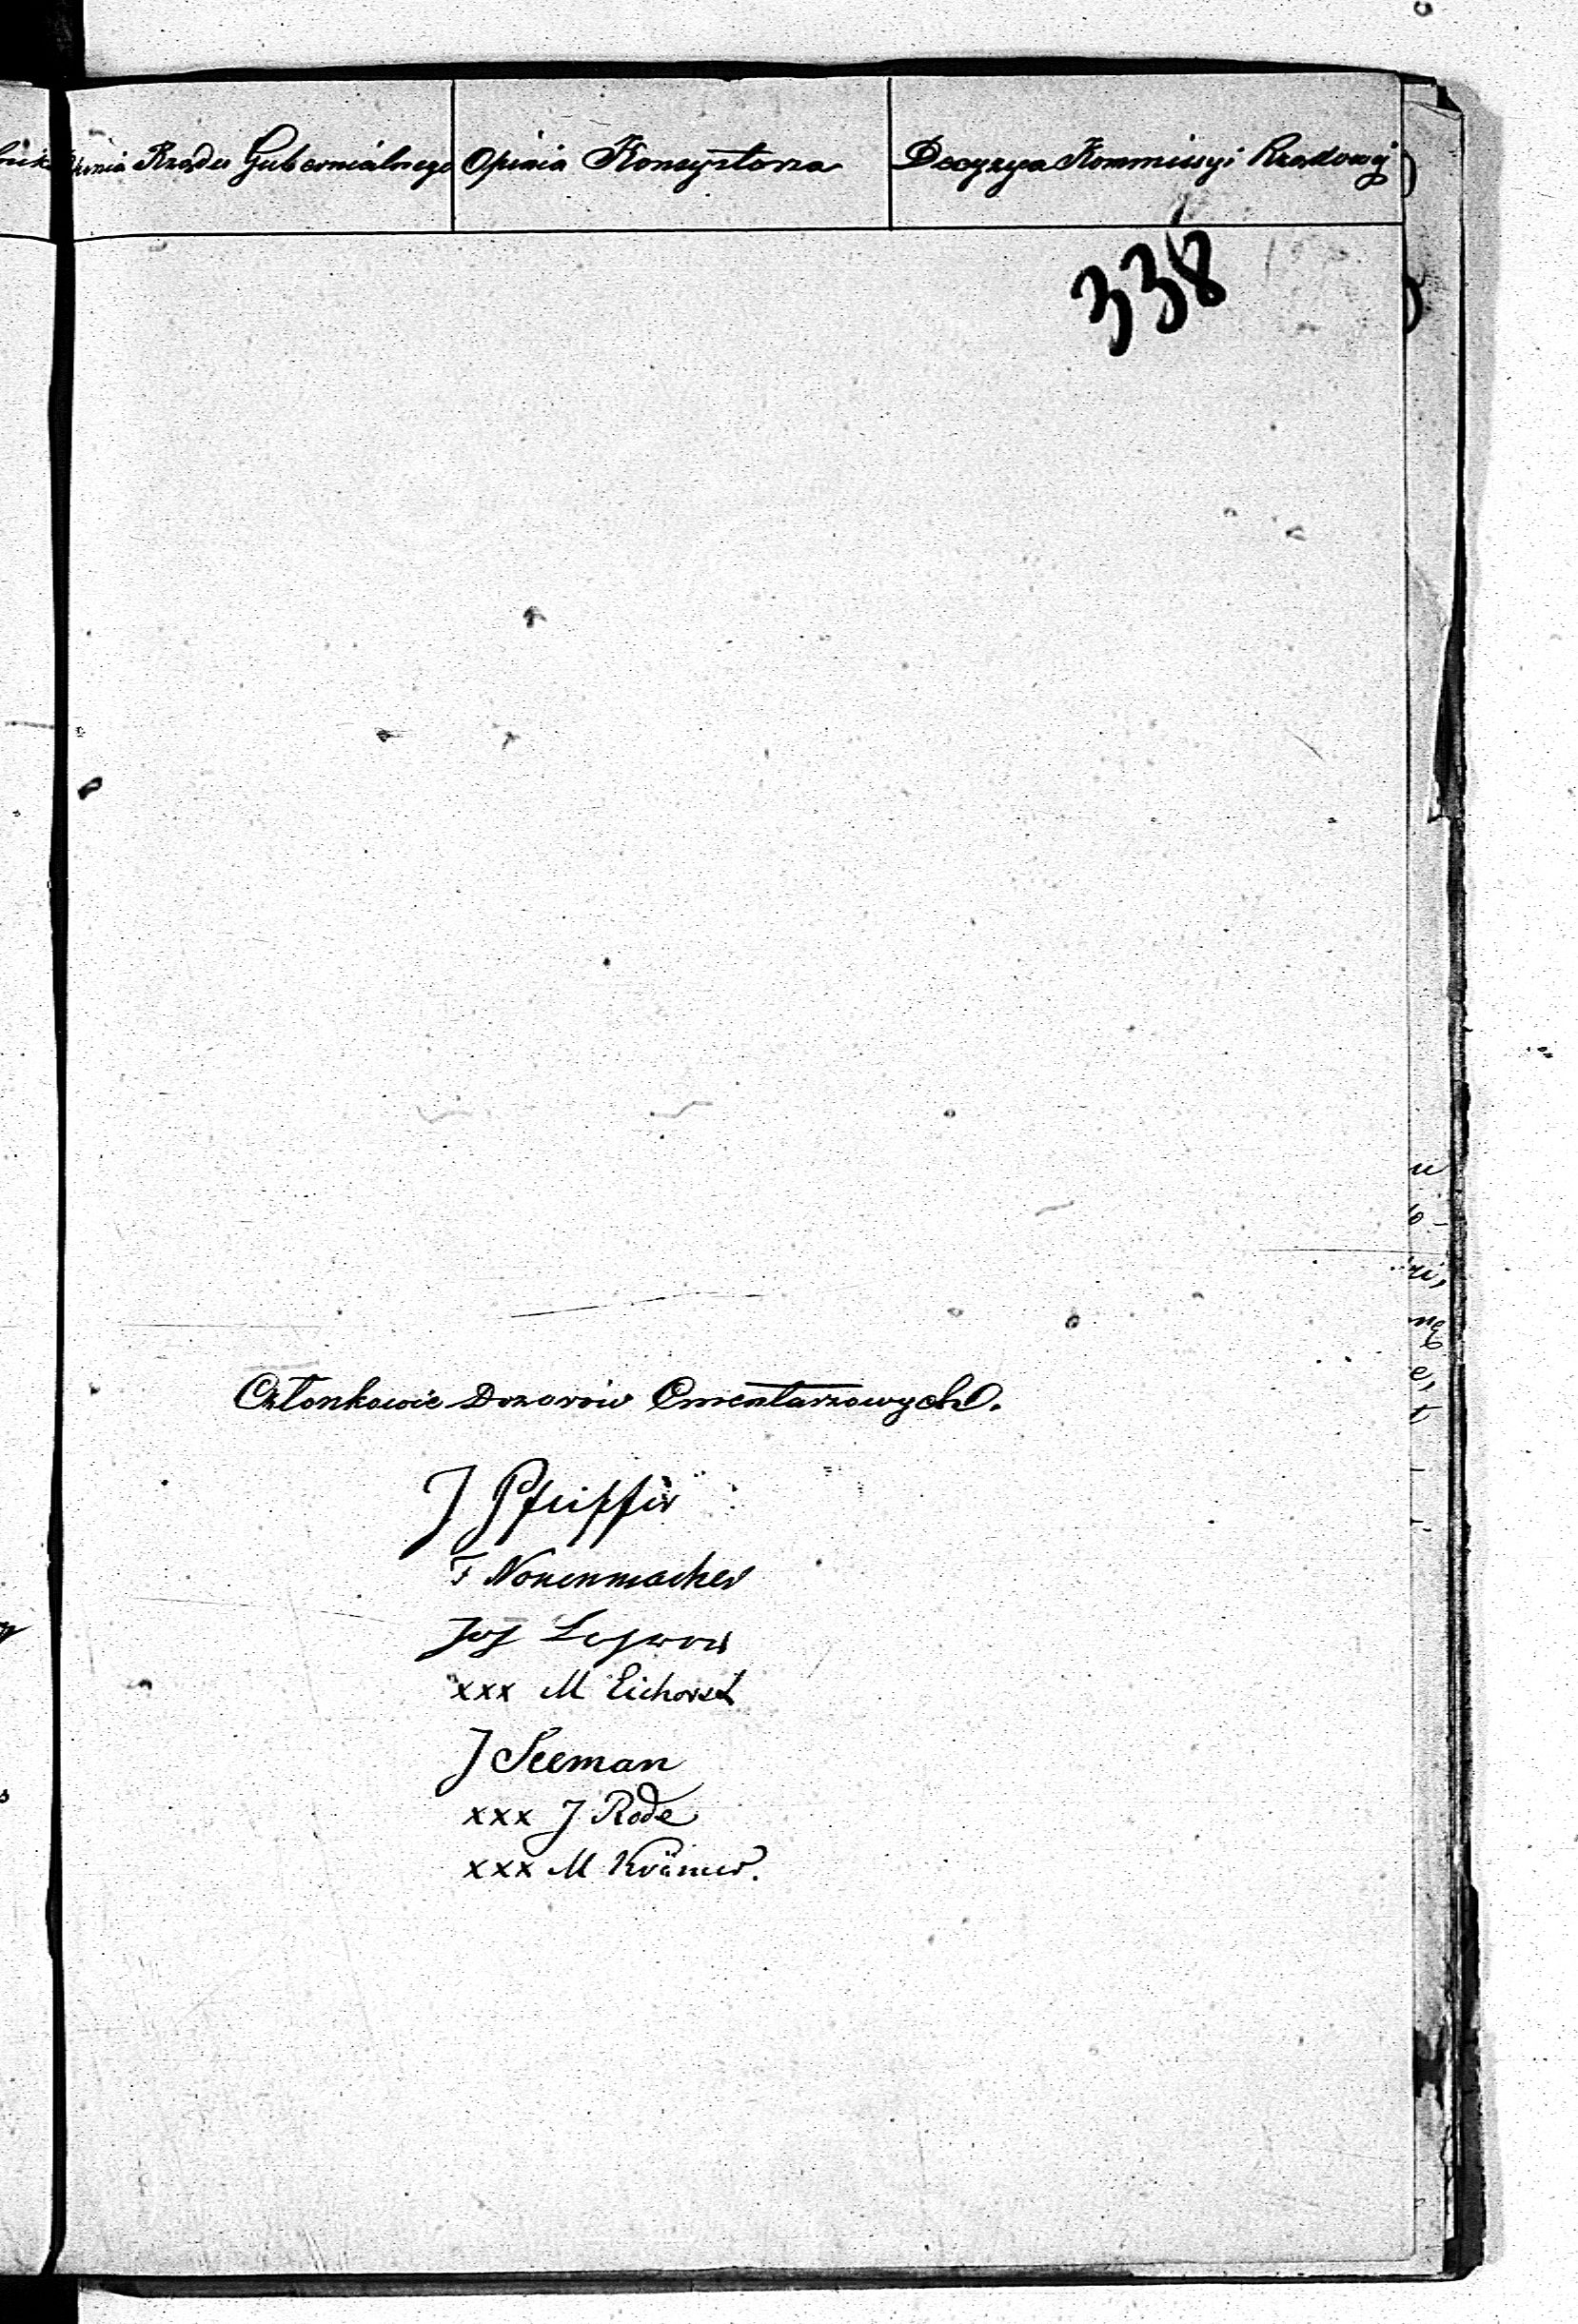 Opinia Rządu Gubernialnego Opinia Konsystorza Decyzya Kommissyi Rządowéj
338
Członkowie Dozorów Cmentarzowych.
J Pfeiffer
F Nonenmacher
Jos
xxx M Eichorst
J Seeman
xxx J Rode
xxx M Krämer.